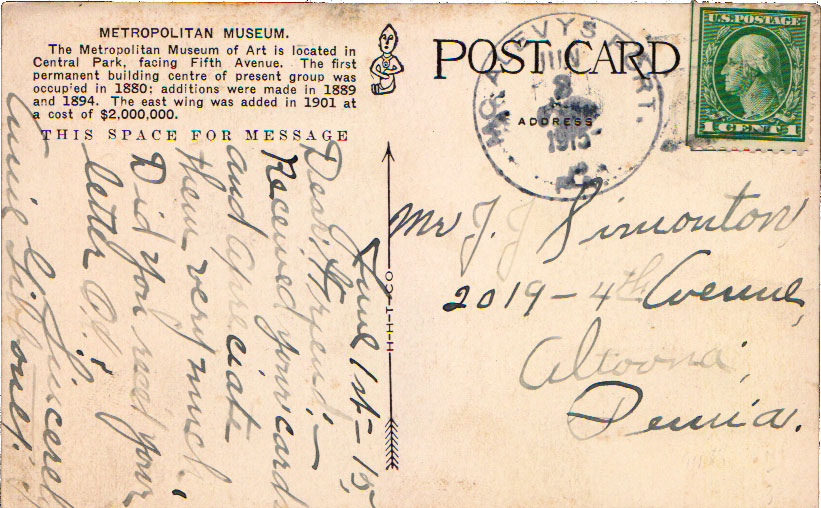 METROPOLITAN MUSEUM.
The Metropolitan Museum of Art is located in
Central Park, facing Fifth Avenue. The first
permanent building centre of present group was
occupied in 1880; additions were made in 1889
and 1894. The east wing was added in 1901 at
a cost of $2,000,000.
THIS SPACE FOR MESSAGE
POST CARD
ADDRESS
U.S. POSTAGE
1 CENT 1
JUN
1915
H-H-T-CO
June 1st - 15,
Dear Friend:-
Received your card
and apreciate
them very much,
Did you rec'd your
letter
Sincerely
Mr J. J. Simonton
2019 - 4th Avenue,
Altoona,
Penn'a.